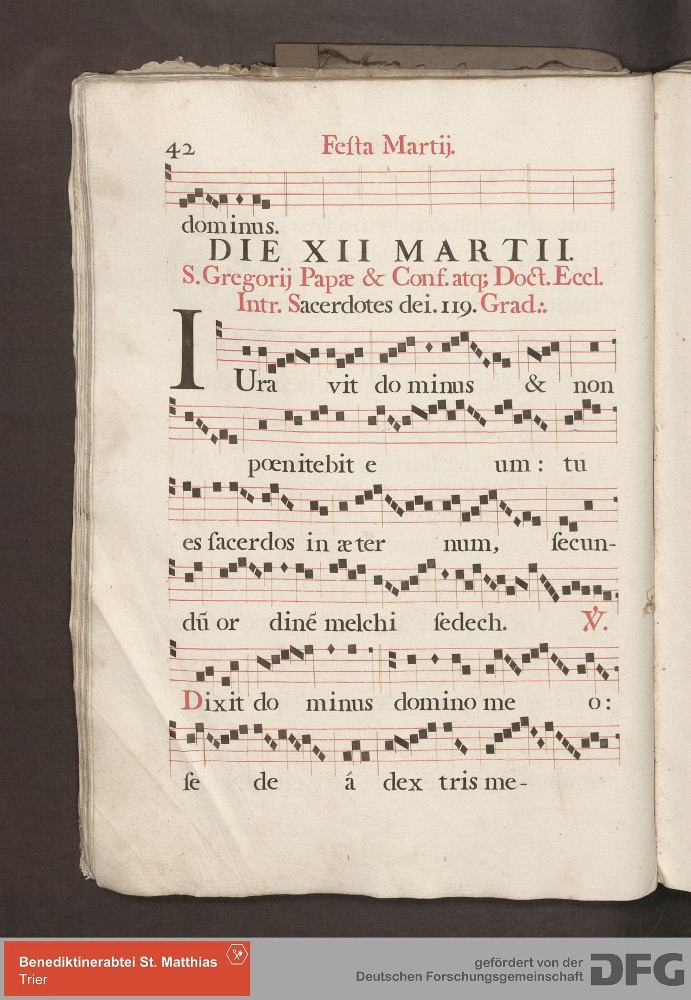 42 Feſta Martij.
dominus.
DIE XII MARTII.
S. Gregorij Papæ & Conf. atq; Doct. Eccl.
Intr. Sacerdotes dei. 119. Grad:.
IUra vit do minus & non
pœnitebit e um : tu
es ſacerdos in æ ter num, ſecun-
dū or dinē melchi ſedech. ℣.
Dixit do minus domino me o:
ſe de á dex tris me-
Benediktinerabtei St. Matthias
Trier
gefördert von der
Deutschen Forschungsgemeinschaft
DFG